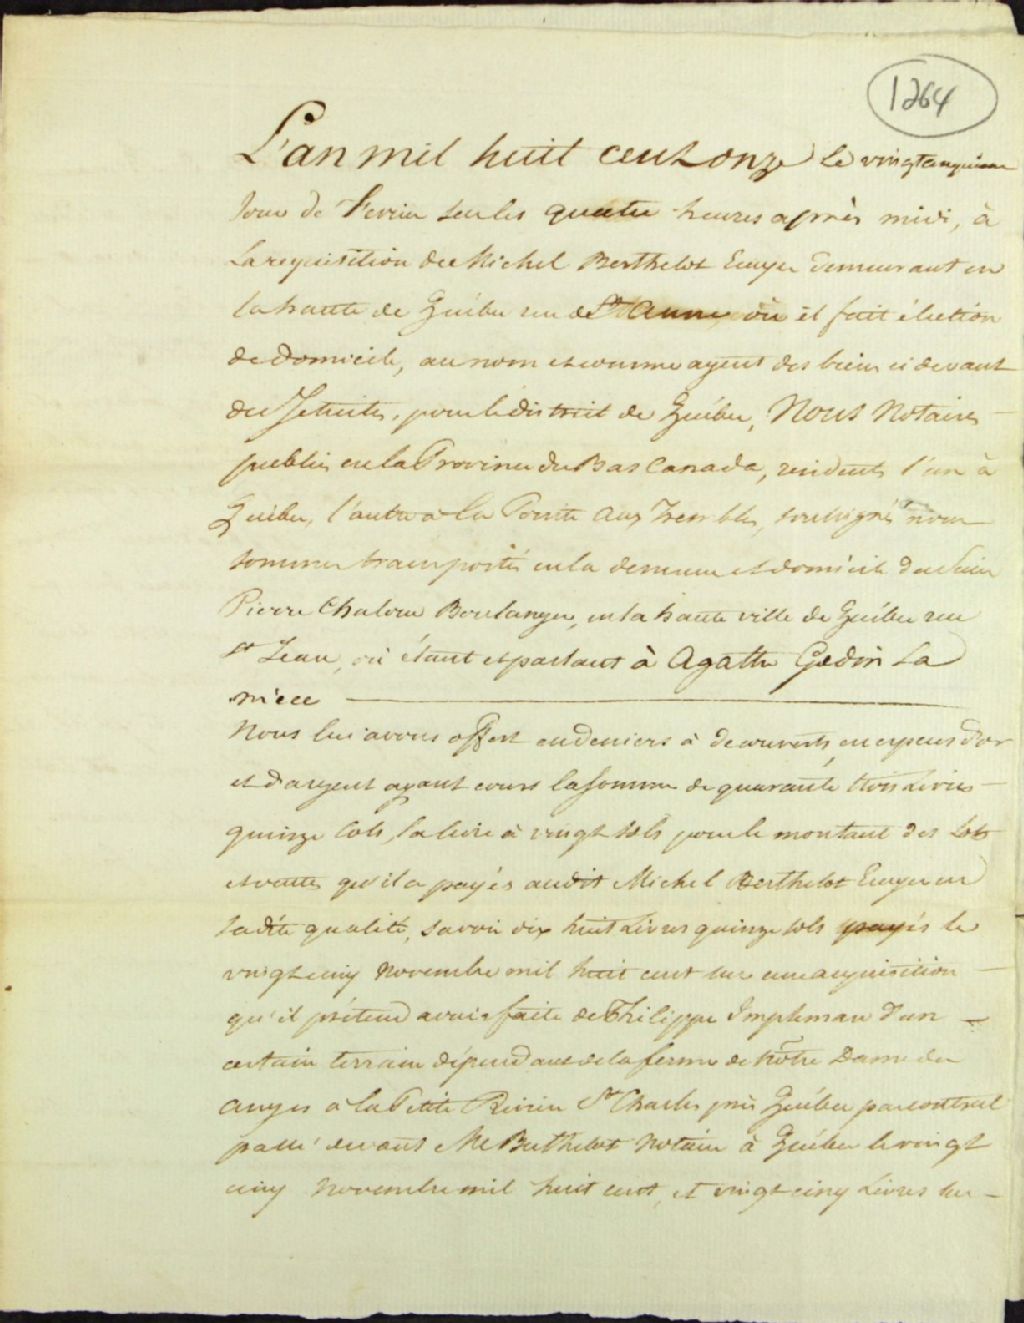 1264
L'an mil huit cent onze le vingtcinquieme
Jour de Fevrier sur les quatre heures après midi, à
La requisition de Michel Berthelot Ecuyer demeurant en
la haute de Québec rue de Ste Anne où il fait élection
de domicile, au nom et comme agent des biens ci devant
des Jesuites, pour le district de Québec, Nous Notaires
publics en la Province du Bas Canada, residents l'un à
Québec, l'autre à la Pointe aux Trembles, soussignés nous
sommes transportés en la demeure et domicile du Sieur
Pierre Chalou Boulanger, en la haute ville de Québec rue
St Jean, où étant et parlant à Agathe Gedin La
niece
Nous lui avons offert en deniers à decouverts, en especes d'or
et d'argent ayant cours la somme de quarante trois Livres
quinze sols, la livre à vingt sols pour le montant des Lots
et ventes qu'il a payés audit Michel Berthelot Ecuyer en
ladite qualité, savoir dix huit Livres quinze sols payés le
vingt cinq Novembre mil huit cent sur une acquisition
qu'il prétend avoir faite de Philippe Impleman d'un
certain terrain dépendant de la ferme de Nôtre Dame des
Anges a la Petite Riviere St Charles près Québec par contrat
passé devant Me Berthelot Notaire à Québec le vingt
cinq Novembre mil huit cent, et vingt cinq Livres sur